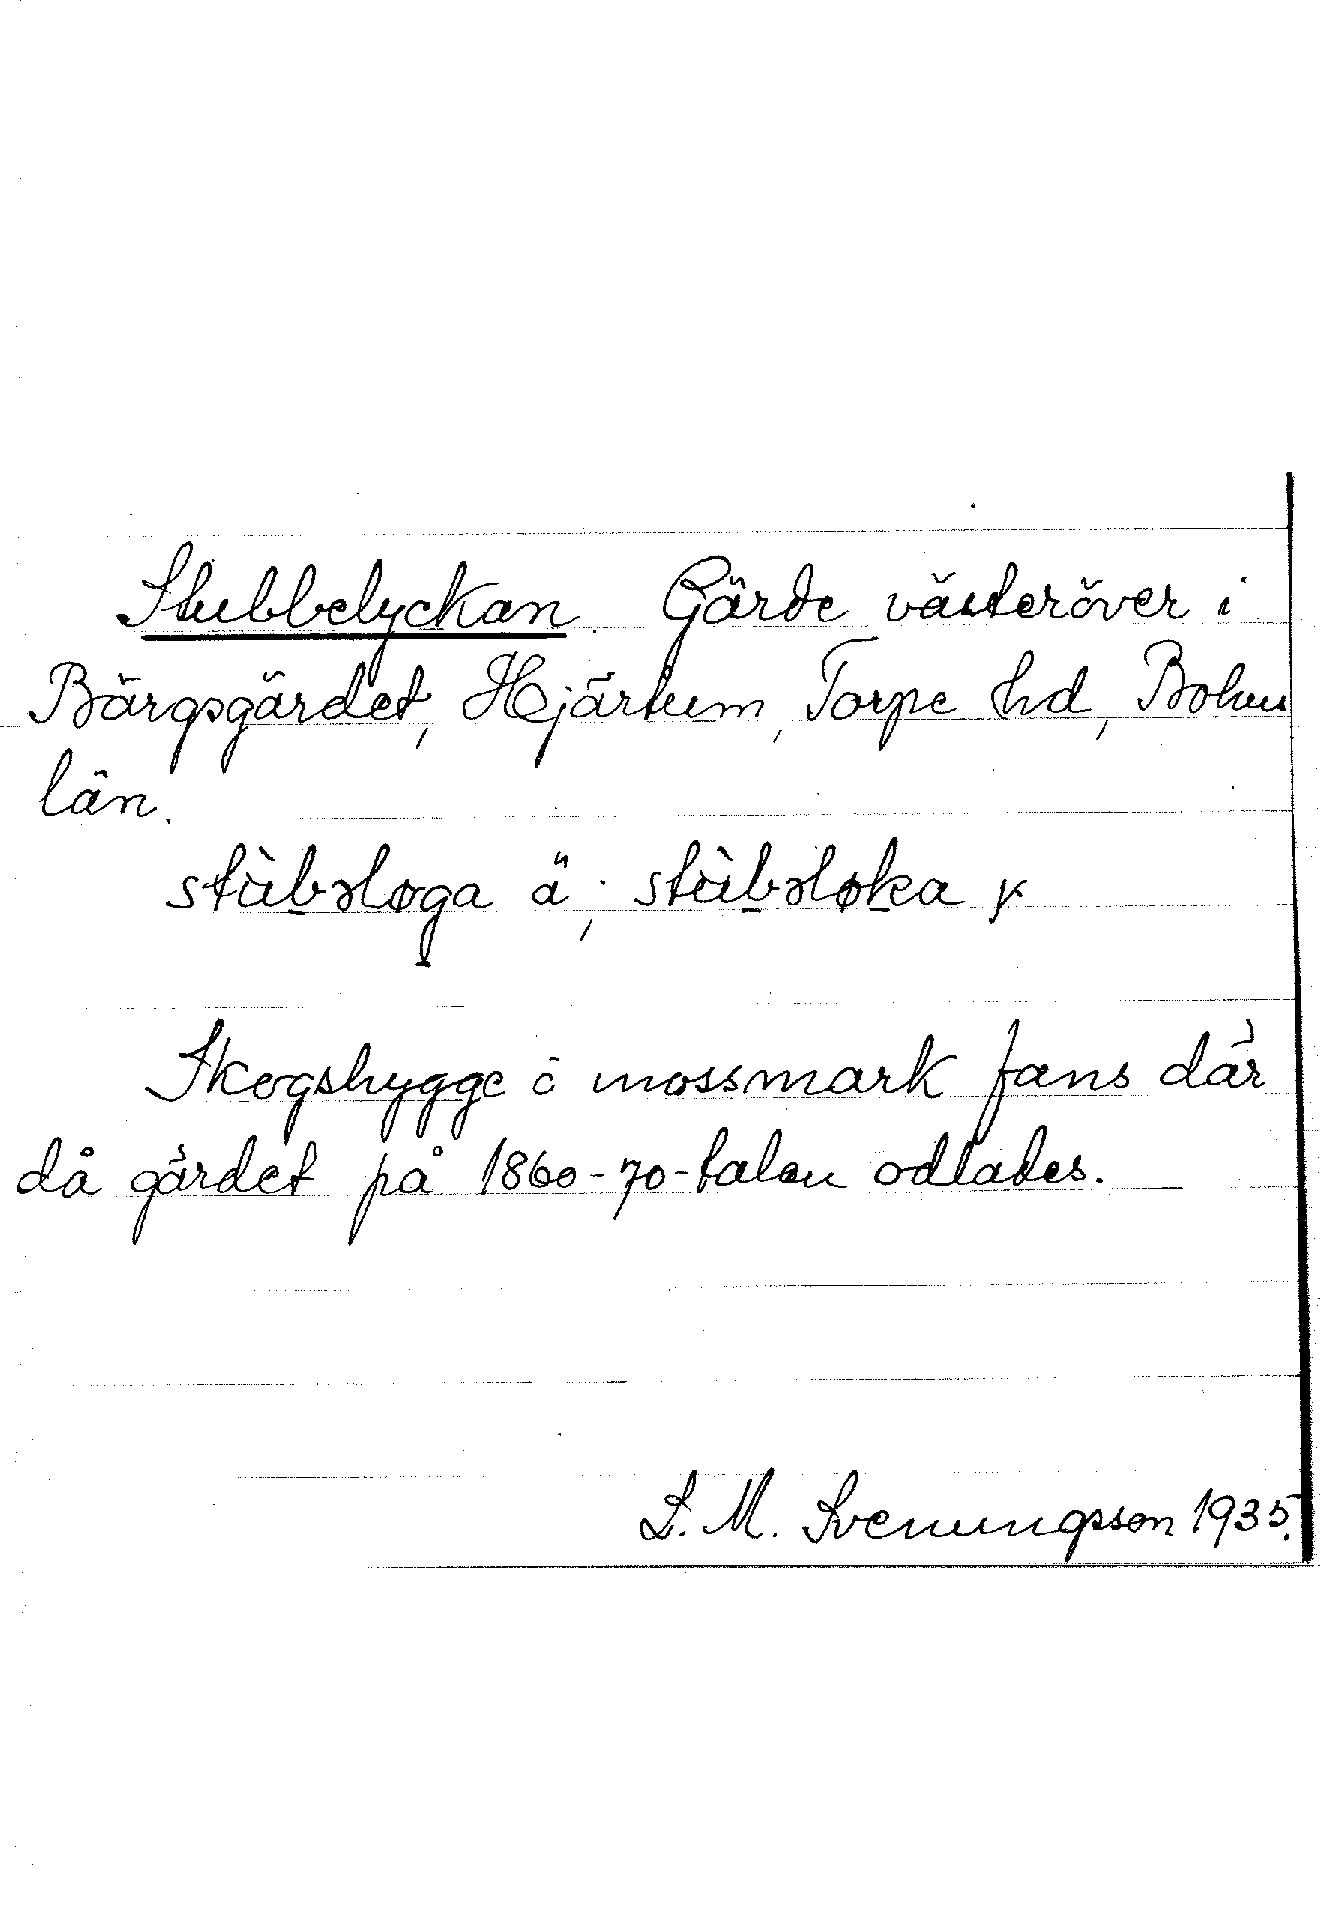 Stubbelyckan. Gärde västeröver i
Bärgsgärdet, Hjärtum, Torpe hd, Bohus
län.
stùbəløga ä; stùbəløka y
Skogshygge ö mossmark fans där
då gärdet på 1860-70-talen odlades.
L. M. Svenungsson 1935.